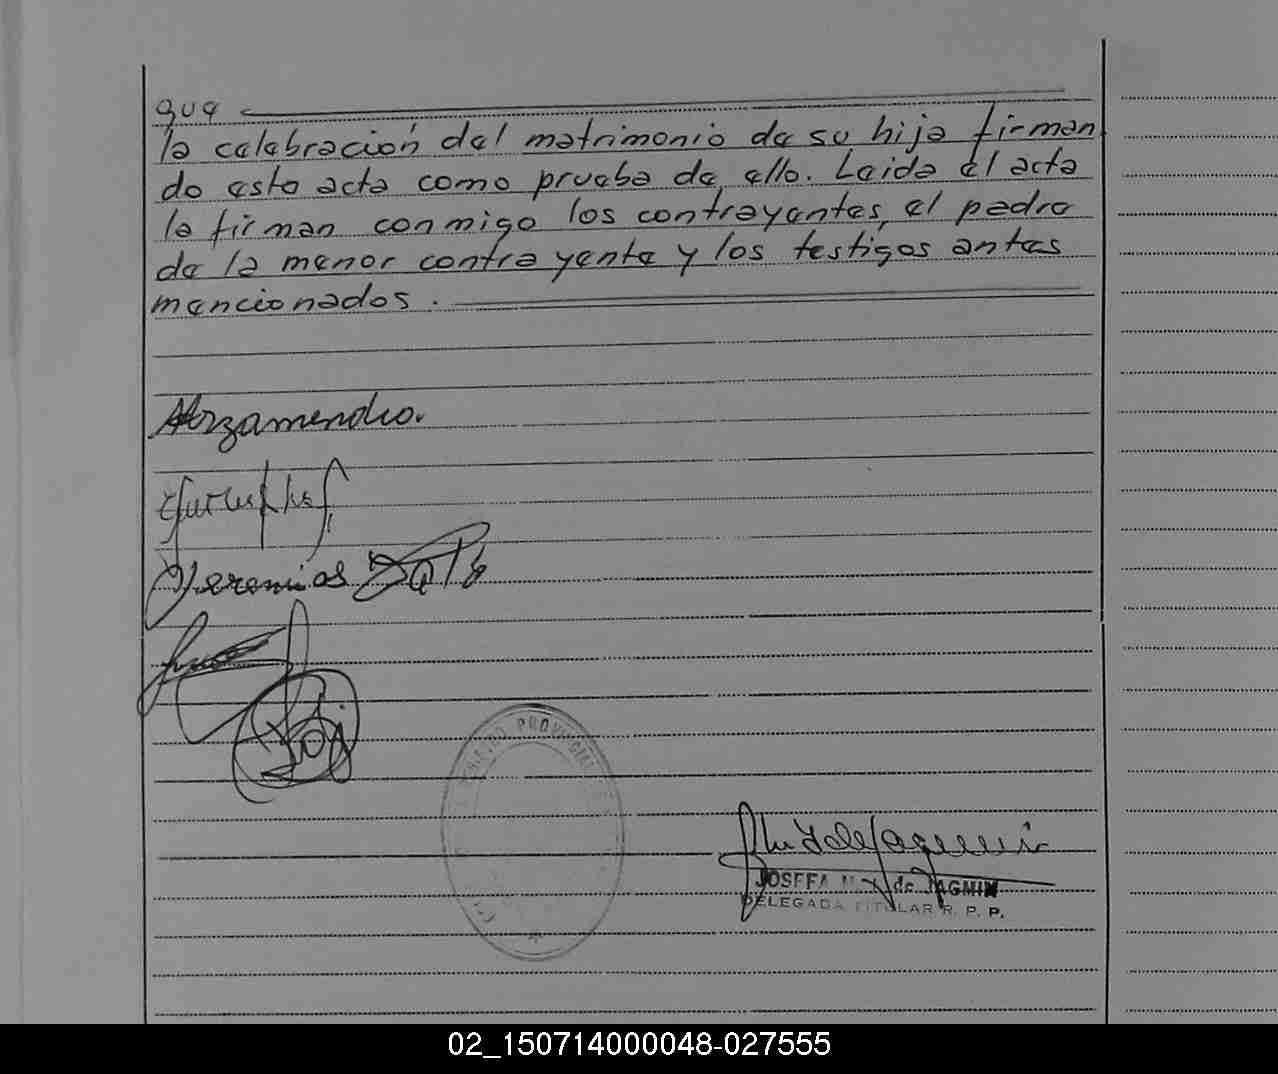 que
la celebración del matrimonio de su hija firman
do esta acta como prueba de ello. Leida el acta
la firman conmigo los contrayentes, el padre
de la menor contrayente y los testigos antes
mencionados.
Jeremias
REGISTRO PROVINCIAL
JOSEFA M. de JAGMIN
DELEGADA TITULAR R. P. P.
02_150714000048-027555